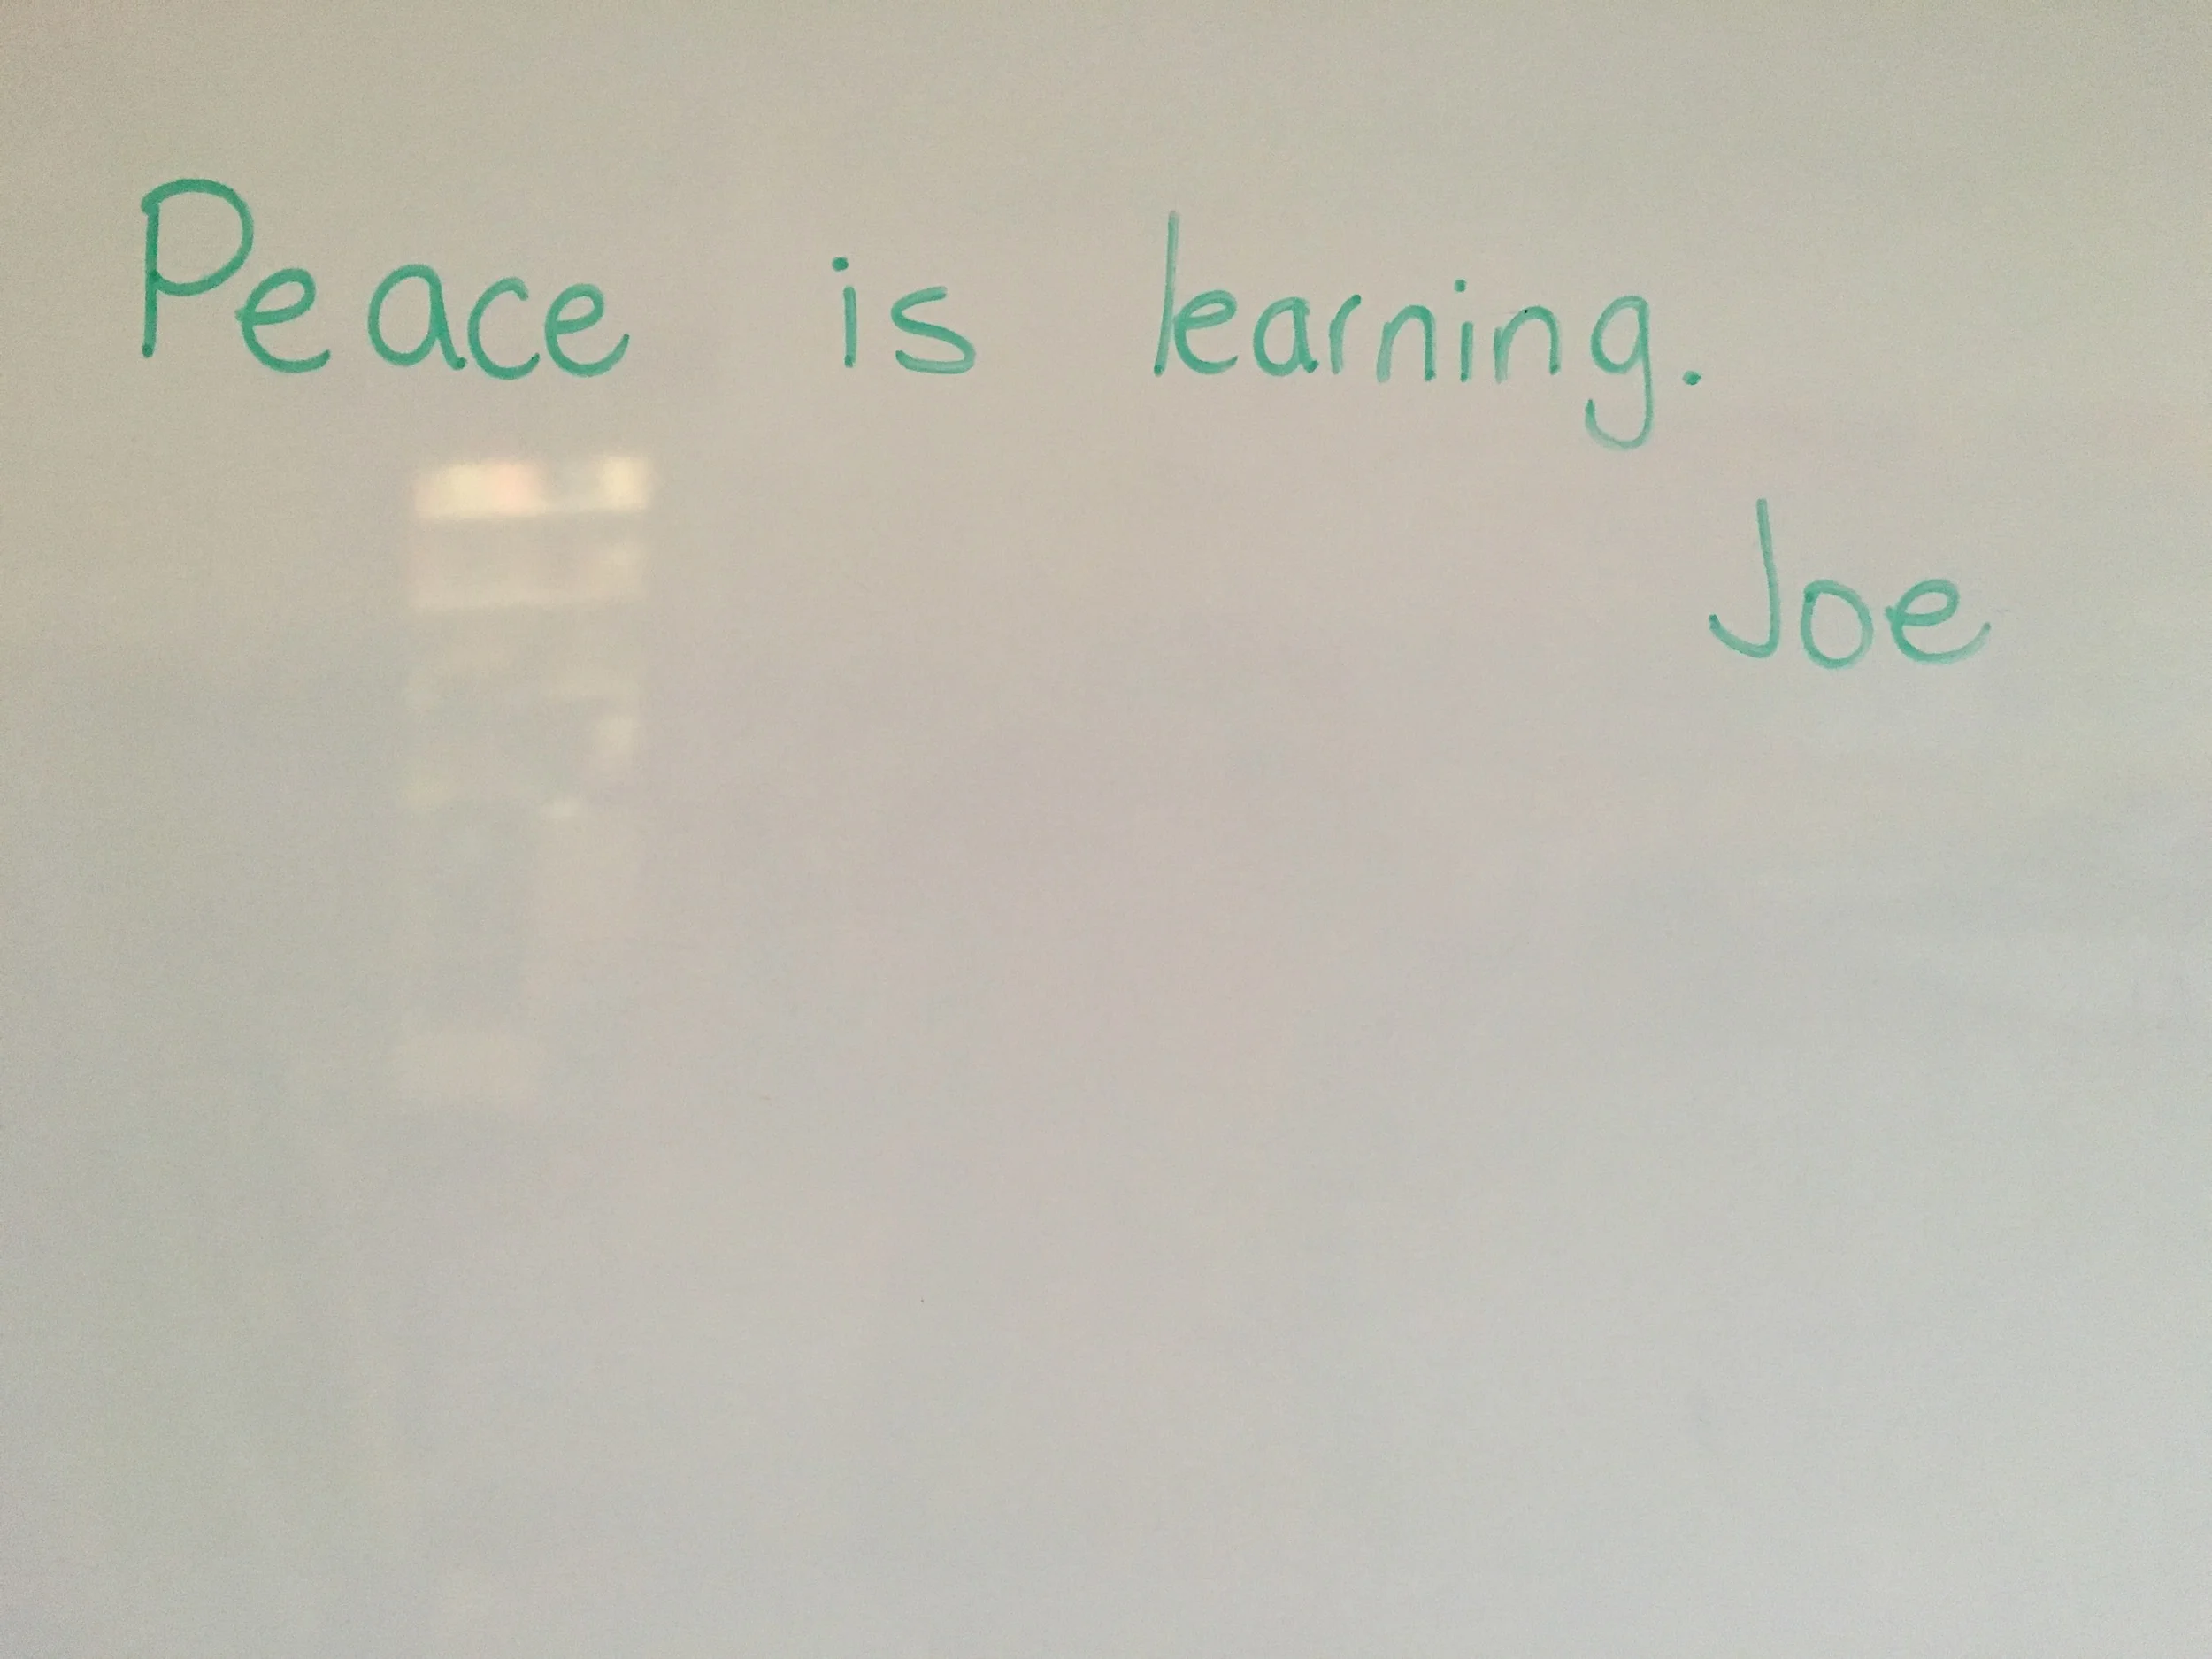 Peace is learning.
Joe